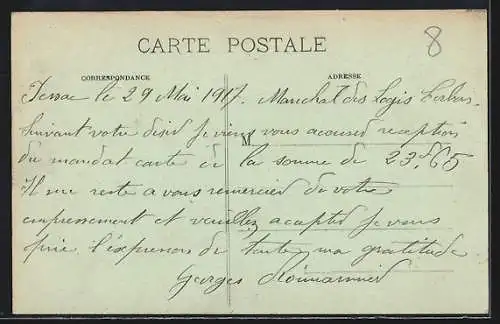 8
CARTE POSTALE
CORRESPONDANCE
ADRESSE
le 29 Mai 1917. Marechal des Logis
Suivant votre désir je viens vous accuser reception
M
du mandat carte de la somme de 23,65
Il me reste a vous remercier de votre
empressement et veuillez accepter je vous
prie l'expression de toute ma gratitude
Georges